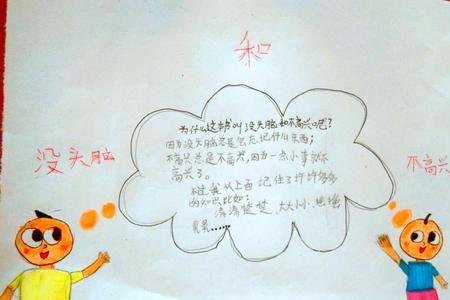 和
没头脑
不高兴
为什么这书叫没头脑和不高兴呢?
因为没头脑总是忘元记什么东西;
不高兴总是不高兴,因为一点小事就不
高兴了。
不过我从上面记住了许许多多
的知识比如:
清清楚楚、大大小小